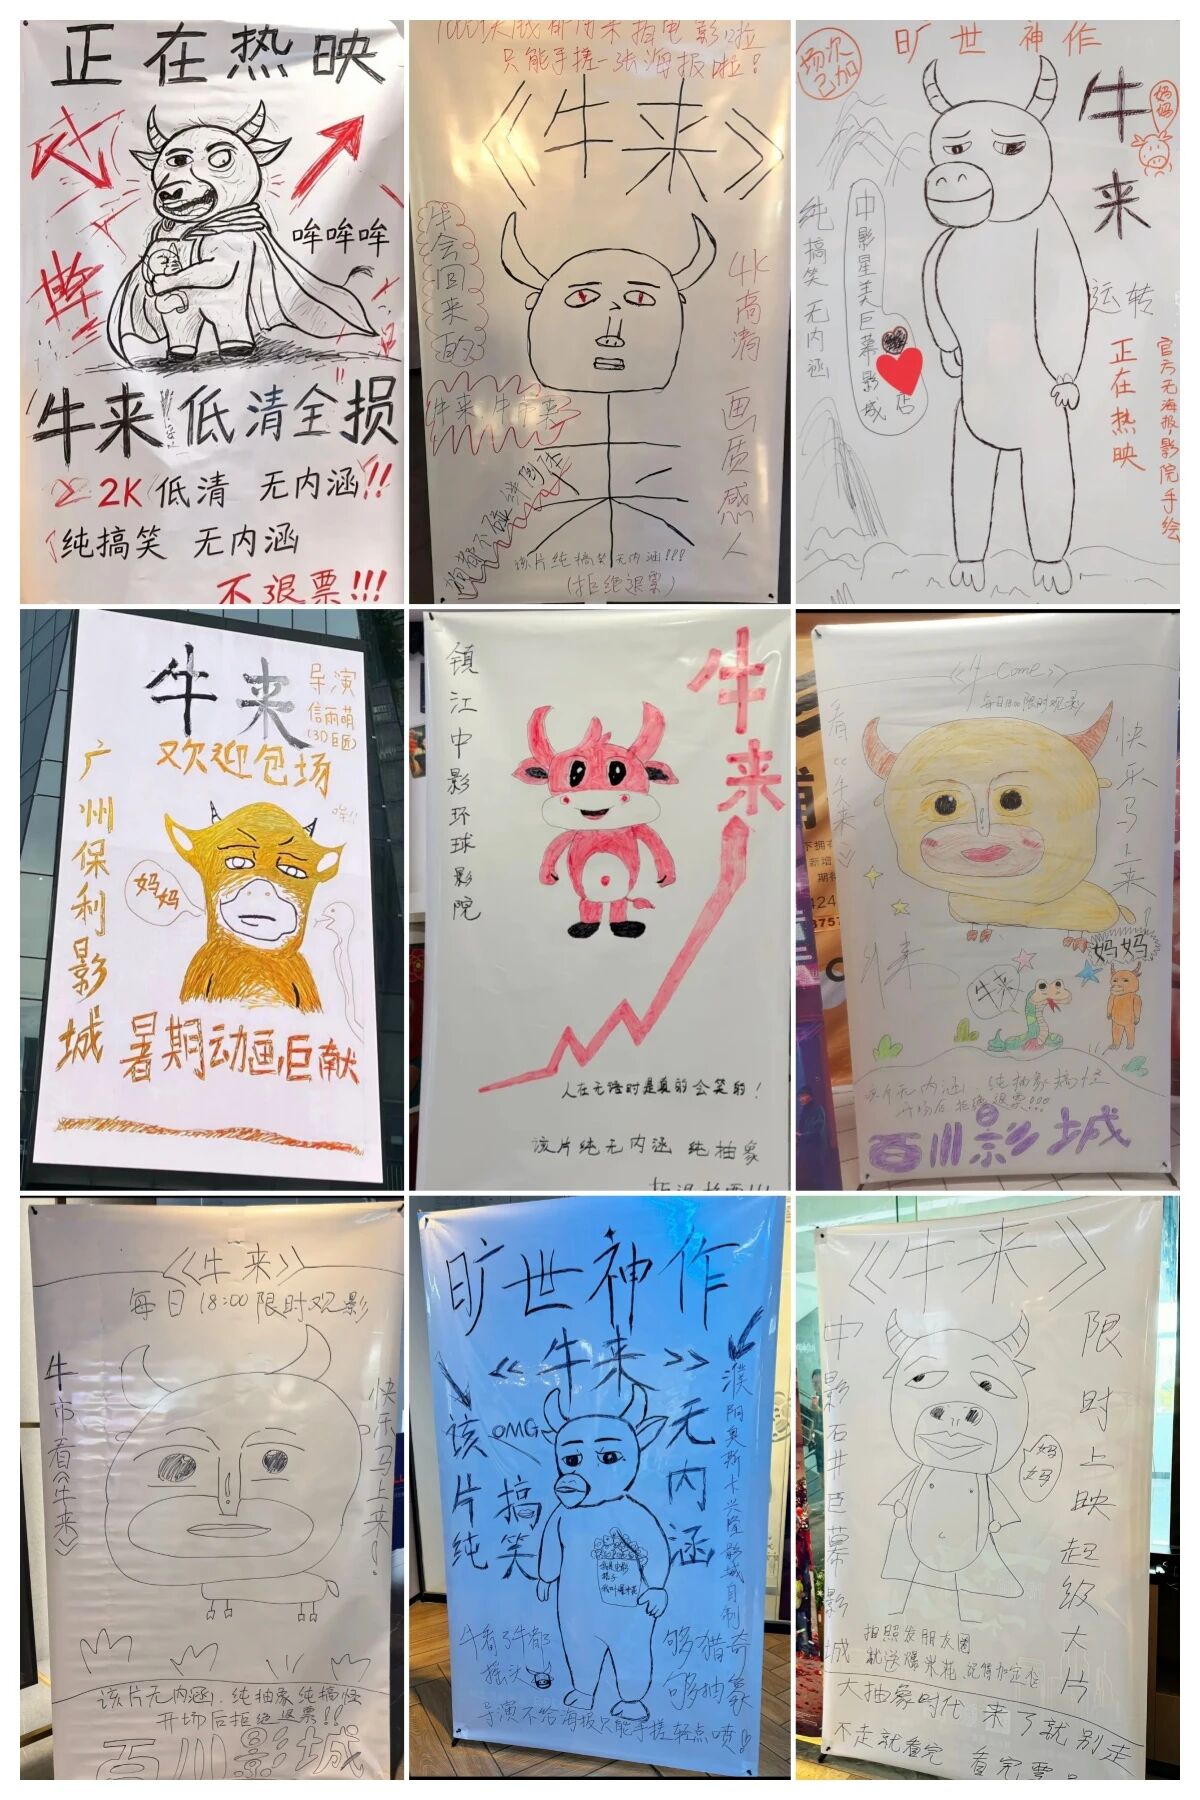 正在热映
哞哞哞
牛来低清全损
2K低清 无内涵!!
纯搞笑 无内涵
不退票!!!
只能手搓一张海报啦!
《牛来》
牛会回来的
4K高清 画质感人
该片纯搞笑无内涵!!!
(拒绝退票)
场次已加
旷世神作
牛来
妈妈
纯搞笑无内涵
中影星美巨幕影城
店
运转
正在热映
官方无海报,影院手绘
牛来
导演
信雨萌
(3D巨匠)
欢迎包场
广州保利影城
哞!!
妈妈
暑期动画巨献
镇江中影环球影院
牛来
人在无语时是真的会笑的!
该片纯无内涵 纯抽象
《牛 Come》
看《牛来》
快乐马上来
牛来
妈妈
牛来
该片无内涵,纯抽象搞怪
开场后拒绝退票!!!
百川影城
《牛来》
每日 18:00 限时观影
牛市看《牛来》
快乐马上来!
该片无内涵,纯抽象纯搞怪
开场后拒绝退票!!
百川影城
旷世神作
《牛来》
该片纯搞笑
OMG
无内涵
濮阳奥斯卡兴隆影城自制
牛看了牛都
摇头
够猎奇
够抽象
导演不给海报只能手搓轻点喷!
《牛来》
中影石井巨幕影城
限时上映超级大片
妈妈
拍照发朋友圈
就送爆米花
大抽象时代 来了就别走
不走就看完 看完